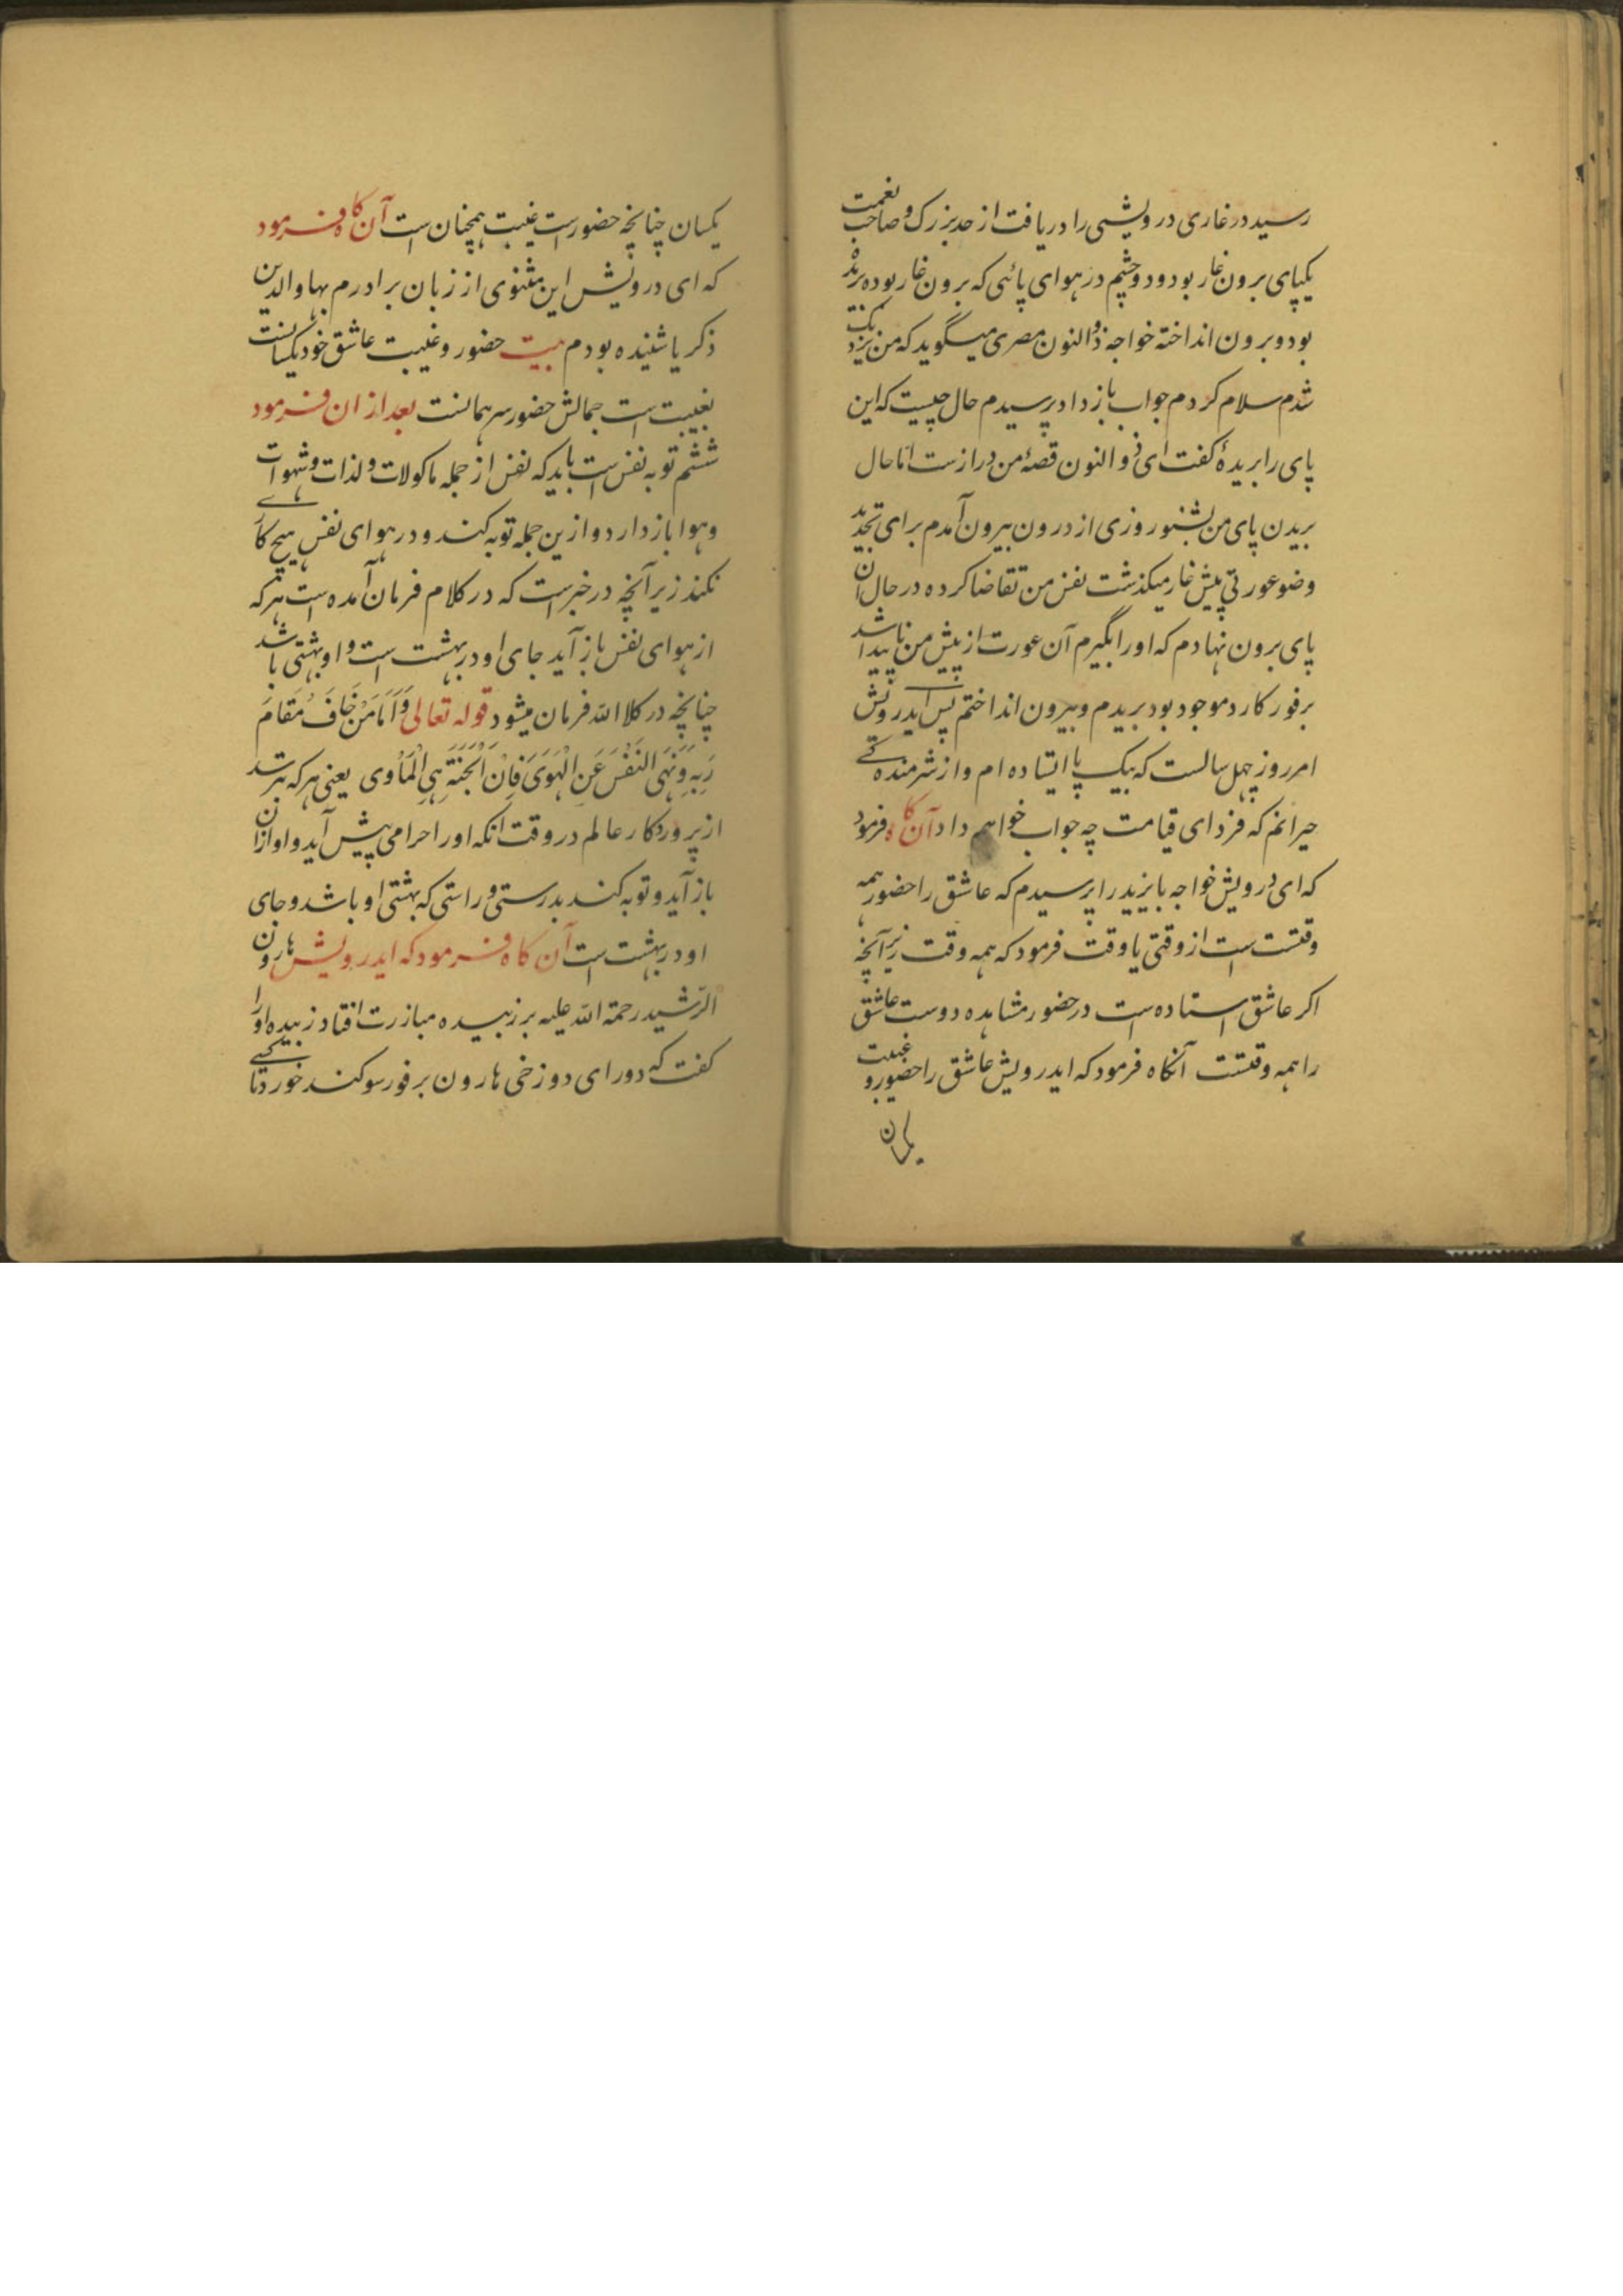 رسید در غاری درویشی را دریافت از حد بزرک و صاحب نعمت
یکپای برون غار بود و دو چشم در هوای پائی که برون غار بوده بریده
بود و برون انداخته خواجه ذوالنون مصری میگوید که من نزدیک
شدم سلام کردم جواب باز داد پرسیدم حال چیست که این
پای را بریدهٔ کفت ای ذوالنون قصهٔ من درازست اما حال
بریدن پای من بشنو روزی از درون بیرون آمدم برای تجدید
وضو عورتی پیش غار میکذشت نفس من تقاضا کرده در حال آن
پای برون نهادم که او را بگیرم آن عورت از پیش من ناپیدا شد
برفور کارد موجود بود بریدم و بیرون انداختم پس ایدرویش
امروز چهل سالست که بیک پا ایستاده ام و از شرمنده کے
حیرانم که فردای قیامت چه جواب خواهم داد آن کاه فرمود
که ای درویش خواجه بایزید را پرسیدم که عاشق را حضور همه
وقتست است از وقتی یا وقت فرمود که همه وقت زیرآنچه
اکر عاشق استاده است در حضور مشاهده دوست عاشق
را همه وقتست آنکاه فرمود که ایدرویش عاشق را حضور و غیبت
یکسان
یکسان چنانچه حضورست غیبت همچنان است آن کاه فرمود
که ای درویش این مثنوی از زبان برادرم بهاوالدین
ذکریا شنیده بودم بیت حضور و غیبت عاشق خود یکسانست
بغیبت است جمالش حضور سر همانست بعد ازان فرمود
ششم توبه نفس است باید که نفس از جمله ماکولات و لذات و شهوات
و هوا باز دارد و ازین جمله توبه کند و در هوای نفس هیچ کارے
نکند زیرآنچه در خبرست که در کلام فرمان آمده است هرکه
از هوای نفس باز آید جای او در بهشت است و او بهشتی باشد
چنانچه در کلام الله فرمان میشود قوله تعالی وَاَمَا مَنْ خَافَ مَقَامَ
رَبِهِ وَنَهَی النَفْسَ عَنِ الْهَوَیَ فَاِنَ الْجَنَةَ هِیَ الْمَاْوی یعنی هرکه بترسد
از پروردکار عالم در وقت انکه او را حرامی پیش آید و او ازان
باز آید و توبه کند بدرستی و راستی که بهشتی او باشد و جای
او در بهشت است آن کاه فرمود که ایدرویش هارون
الرّشید رحمة الله علیه بر زبیده مبازرت افتاد زبیده او را
کفت که دور ای دوزخی هارون برفور سوکند خورد تا